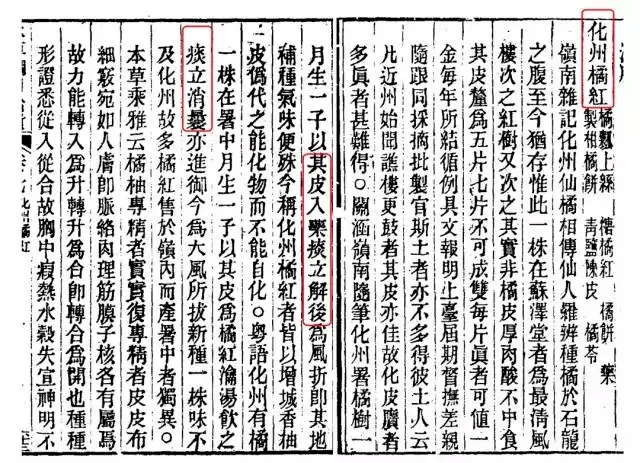 化州橘紅 橘瓤上絲 橘紅 橘餅 藥
製柑橘餅 青鹽陳皮 橘苓
嶺南雜記化州仙橘相傳仙人羅辨種橘於石龍
之腹至今猶存惟此一株在蘇澤堂者為最清風
樓次之紅樹又次之其實非橘皮厚肉酸不中食
其皮釐為五片七片不可成雙每片眞者可值一
金每年所結循例具文報明上臺屆期督撫差親
隨跟同採摘批製官斯土者亦不多得彼土人云
凡近州始聞譙樓更鼓者其皮亦佳故化皮贗者
多眞者甚難得○關涵嶺南隨筆化州署橘樹一
月生一子以其皮入藥痰立解後為風折即其地
補種氣味便殊今稱化州橘紅者皆以增城香柚
皮偽代之能化物而不能自化○粤語化州有橘
一株在署中月生一子以其皮為橘紅瀹湯飲之
痰立消曩亦進御今為大風所拔新種一株味不
及化州故多橘紅售於嶺內而產署中者獨異○
本草乘雅云橘柚專精者實實復專精者皮皮布
細竅宛如人膚即脈絡肉理筋膜子核各有屬焉
故力能轉入為升轉升為合即轉合為開也種種
形證悉從入從合故胸中瘕熱水穀失宣神明不